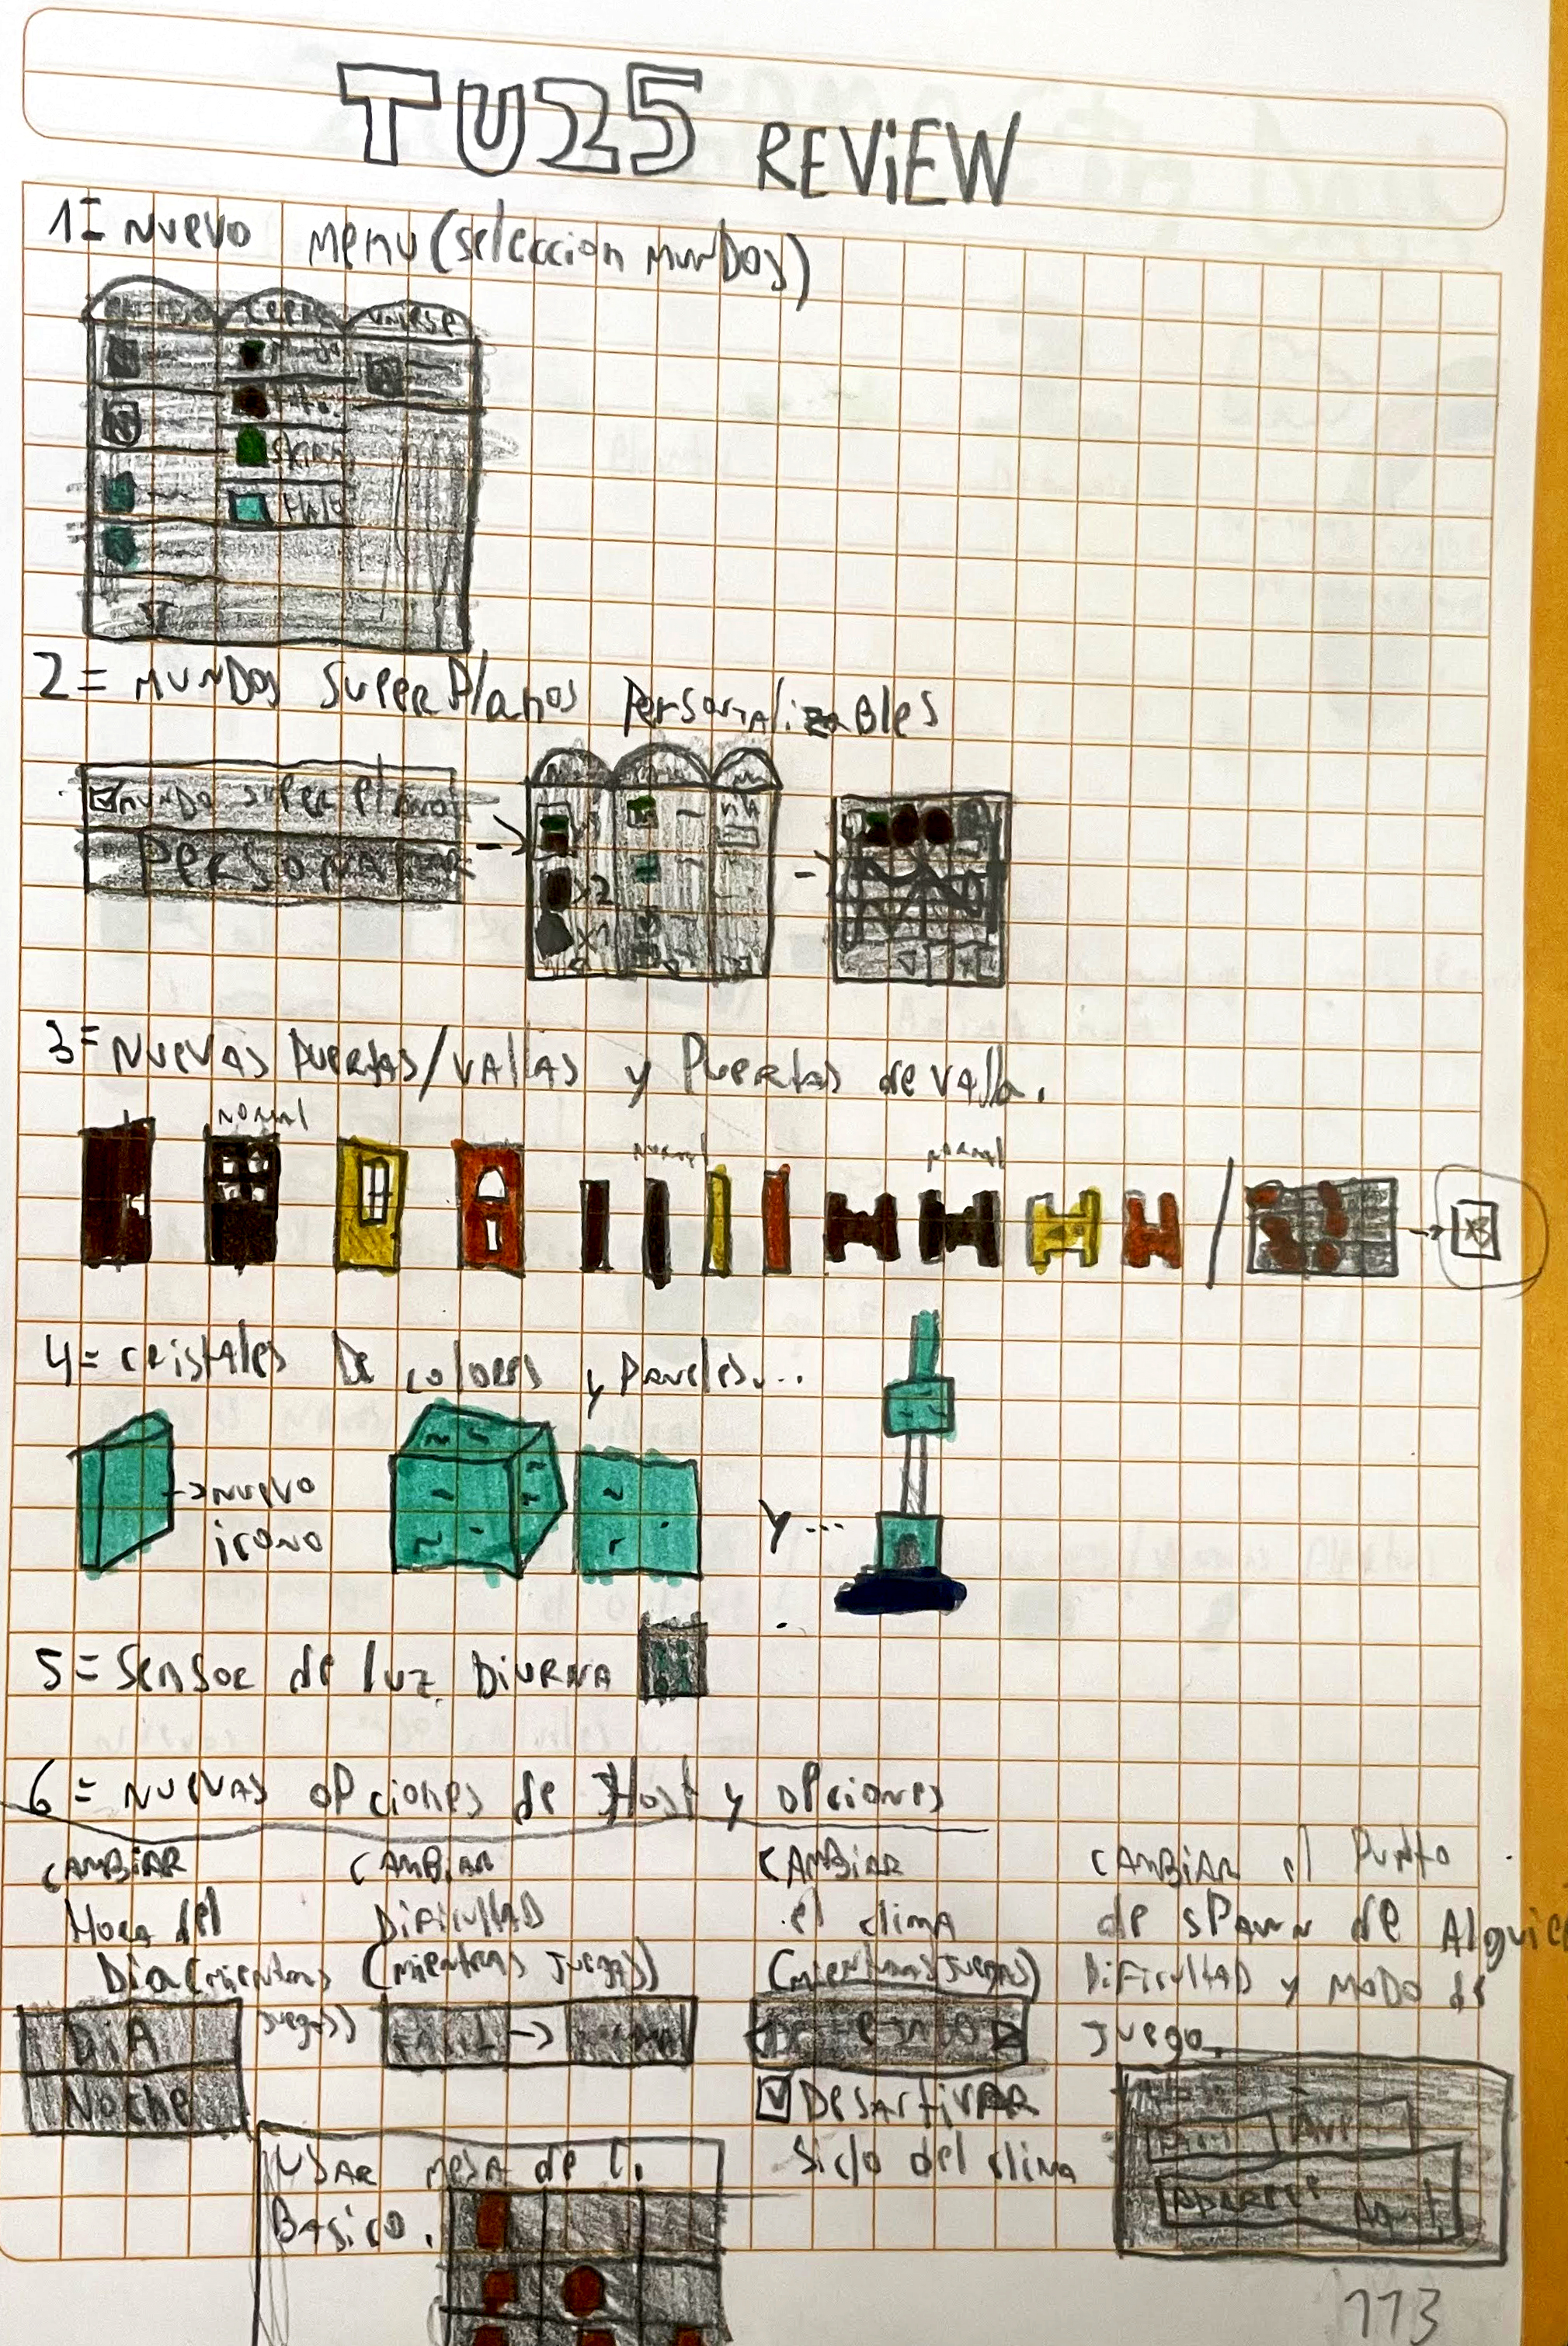 TU25 REVIEW
1= Nuevo Menu (seleccion MunDos)
Crear unirse
Skins
2= MUNDOS Super Planos PersonAlizaBles
Mundo super Plano
PERSONALIZAR
x2
x1
3= Nuevas Puertas/vallas y Puertas de valla.
normal normal normal
x3
4= cristales De colores y Paneles...
→ nuevo icono
Y...
5= Sensor de luz Diurna
6= Nuevas opciones de Host y opciones
CAMBiAR
Hora del
Dia (mientras
juegas)
DiA
Noche
CAMBiAR
DificultAD
(mientras juegas)
FACIL →
CAMBiAR
el clima
(mientras juegas)
DesActivAR
Siclo del clima
CAMBiAR el Punto
de sPawn de Alguien
DificultAD y MoDo de
juego.
Aquí
USAR mesA de C.
Basico.
113